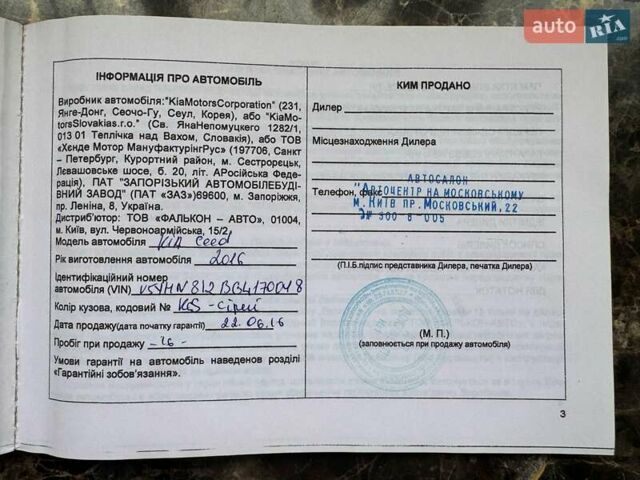 auto RIA .com
ІНФОРМАЦІЯ ПРО АВТОМОБІЛЬ
Виробник автомобіля:"KiaMotorsCorporation" (231,
Янге-Донг, Сеочо-Гу, Сеул, Корея), або "KiaMo-
torsSlovakias.r.o." (Св. ЯнаНепомуцкего 1282/1,
013 01 Теплічка над Вахом, Словакія), або ТОВ
«Хенде Мотор МануфактурінгРус» (197706, Санкт
– Петербург, Курортний район, м. Сестрорецьк,
Левашовське шосе, б. 20, літ. АРосійська Феде-
рація), ПАТ "ЗАПОРІЗЬКИЙ АВТОМОБІЛЕБУДІ-
ВНИЙ ЗАВОД" (ПАТ «ЗАЗ»)69600, м. Запоріжжя,
пр. Леніна, 8, Україна.
Дистриб'ютор: ТОВ «ФАЛЬКОН – АВТО», 01004,
м. Київ, вул. Червоноармійська, 15/2
Модель автомобіля KIA Ceed
Рік виготовлення автомобіля 2016
Ідентифікаційний номер
автомобіля (VIN)
Колір кузова, кодовий №
Дата продажу(дата початку гарантії) 22.06.16
Пробіг при продажу -16-
Умови гарантії на автомобіль наведенов розділі
«Гарантійні зобов'язання».
КИМ ПРОДАНО
Дилер
Місцезнаходження Дилера
Телефон, факс
АВТОСАЛОН
"Автоцентр на Московському
м. Київ пр. Московський, 22
(П.І.Б.підпис представника Дилера, печатка Дилера)
(М. П.)
(заповнюється при продажу автомобіля)
3